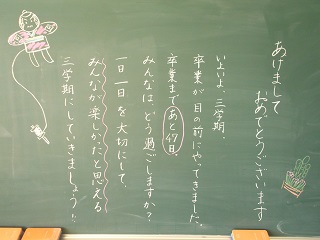 あけまして
おめでとうございます
いよいよ、三学期。
卒業が目の前にやってきました。
卒業まであと47日。
みんなは、どう過ごしますか?
一日一日を大切にして、
みんなが楽しかったと思える
三学期にしていきましょう!!